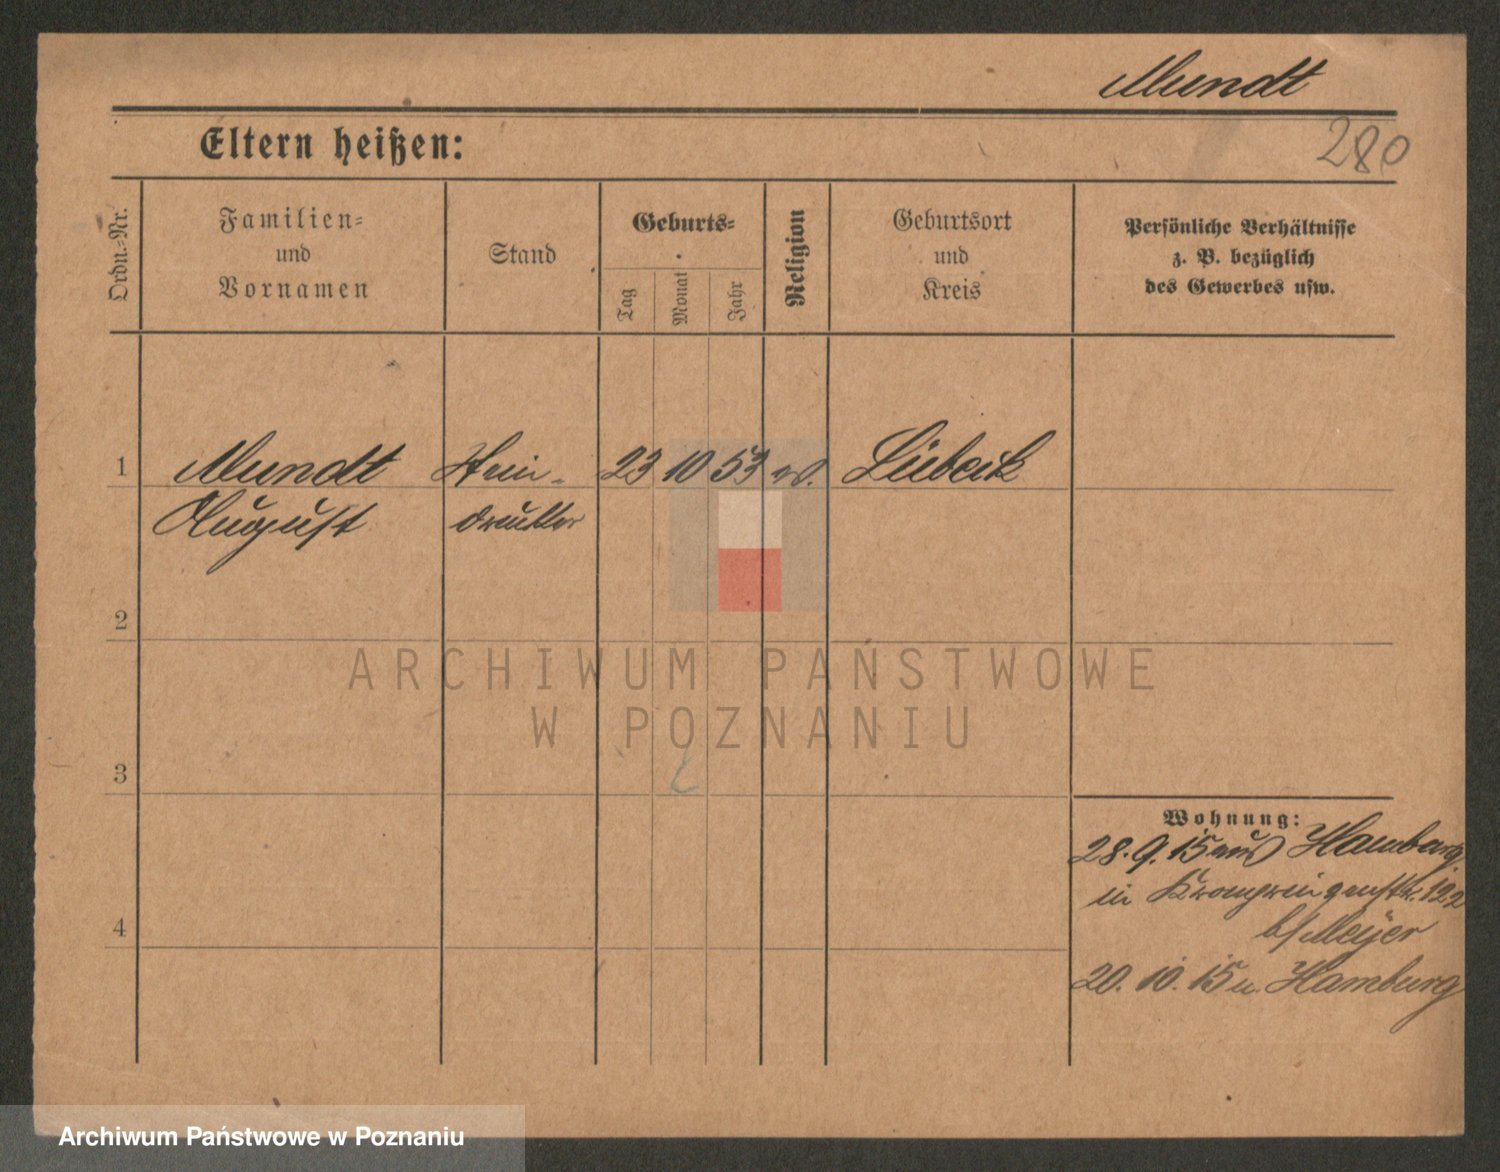 Mundt
280
Eltern heißen:
Ordn.-Nr.
Familien-
und
Vornamen
Stand
Geburts-
Tag
Monat
Jahr
Religion
Geburtsort
und
Kreis
Persönliche Verhältnisse
z. B. bezüglich
des Gewerbes usw.
1
Mundt
August
Stein-
drucker
23
10
53
ev.
Lübeck
2
3
4
ARCHIWUM PAŃSTWOWE
W POZNANIU
Wohnung:
28.9.15 aus Hamburg
in Kronprinzenstr. 122
b/ Meyer
20.10.15 n. Hamburg
Archiwum Państwowe w Poznaniu